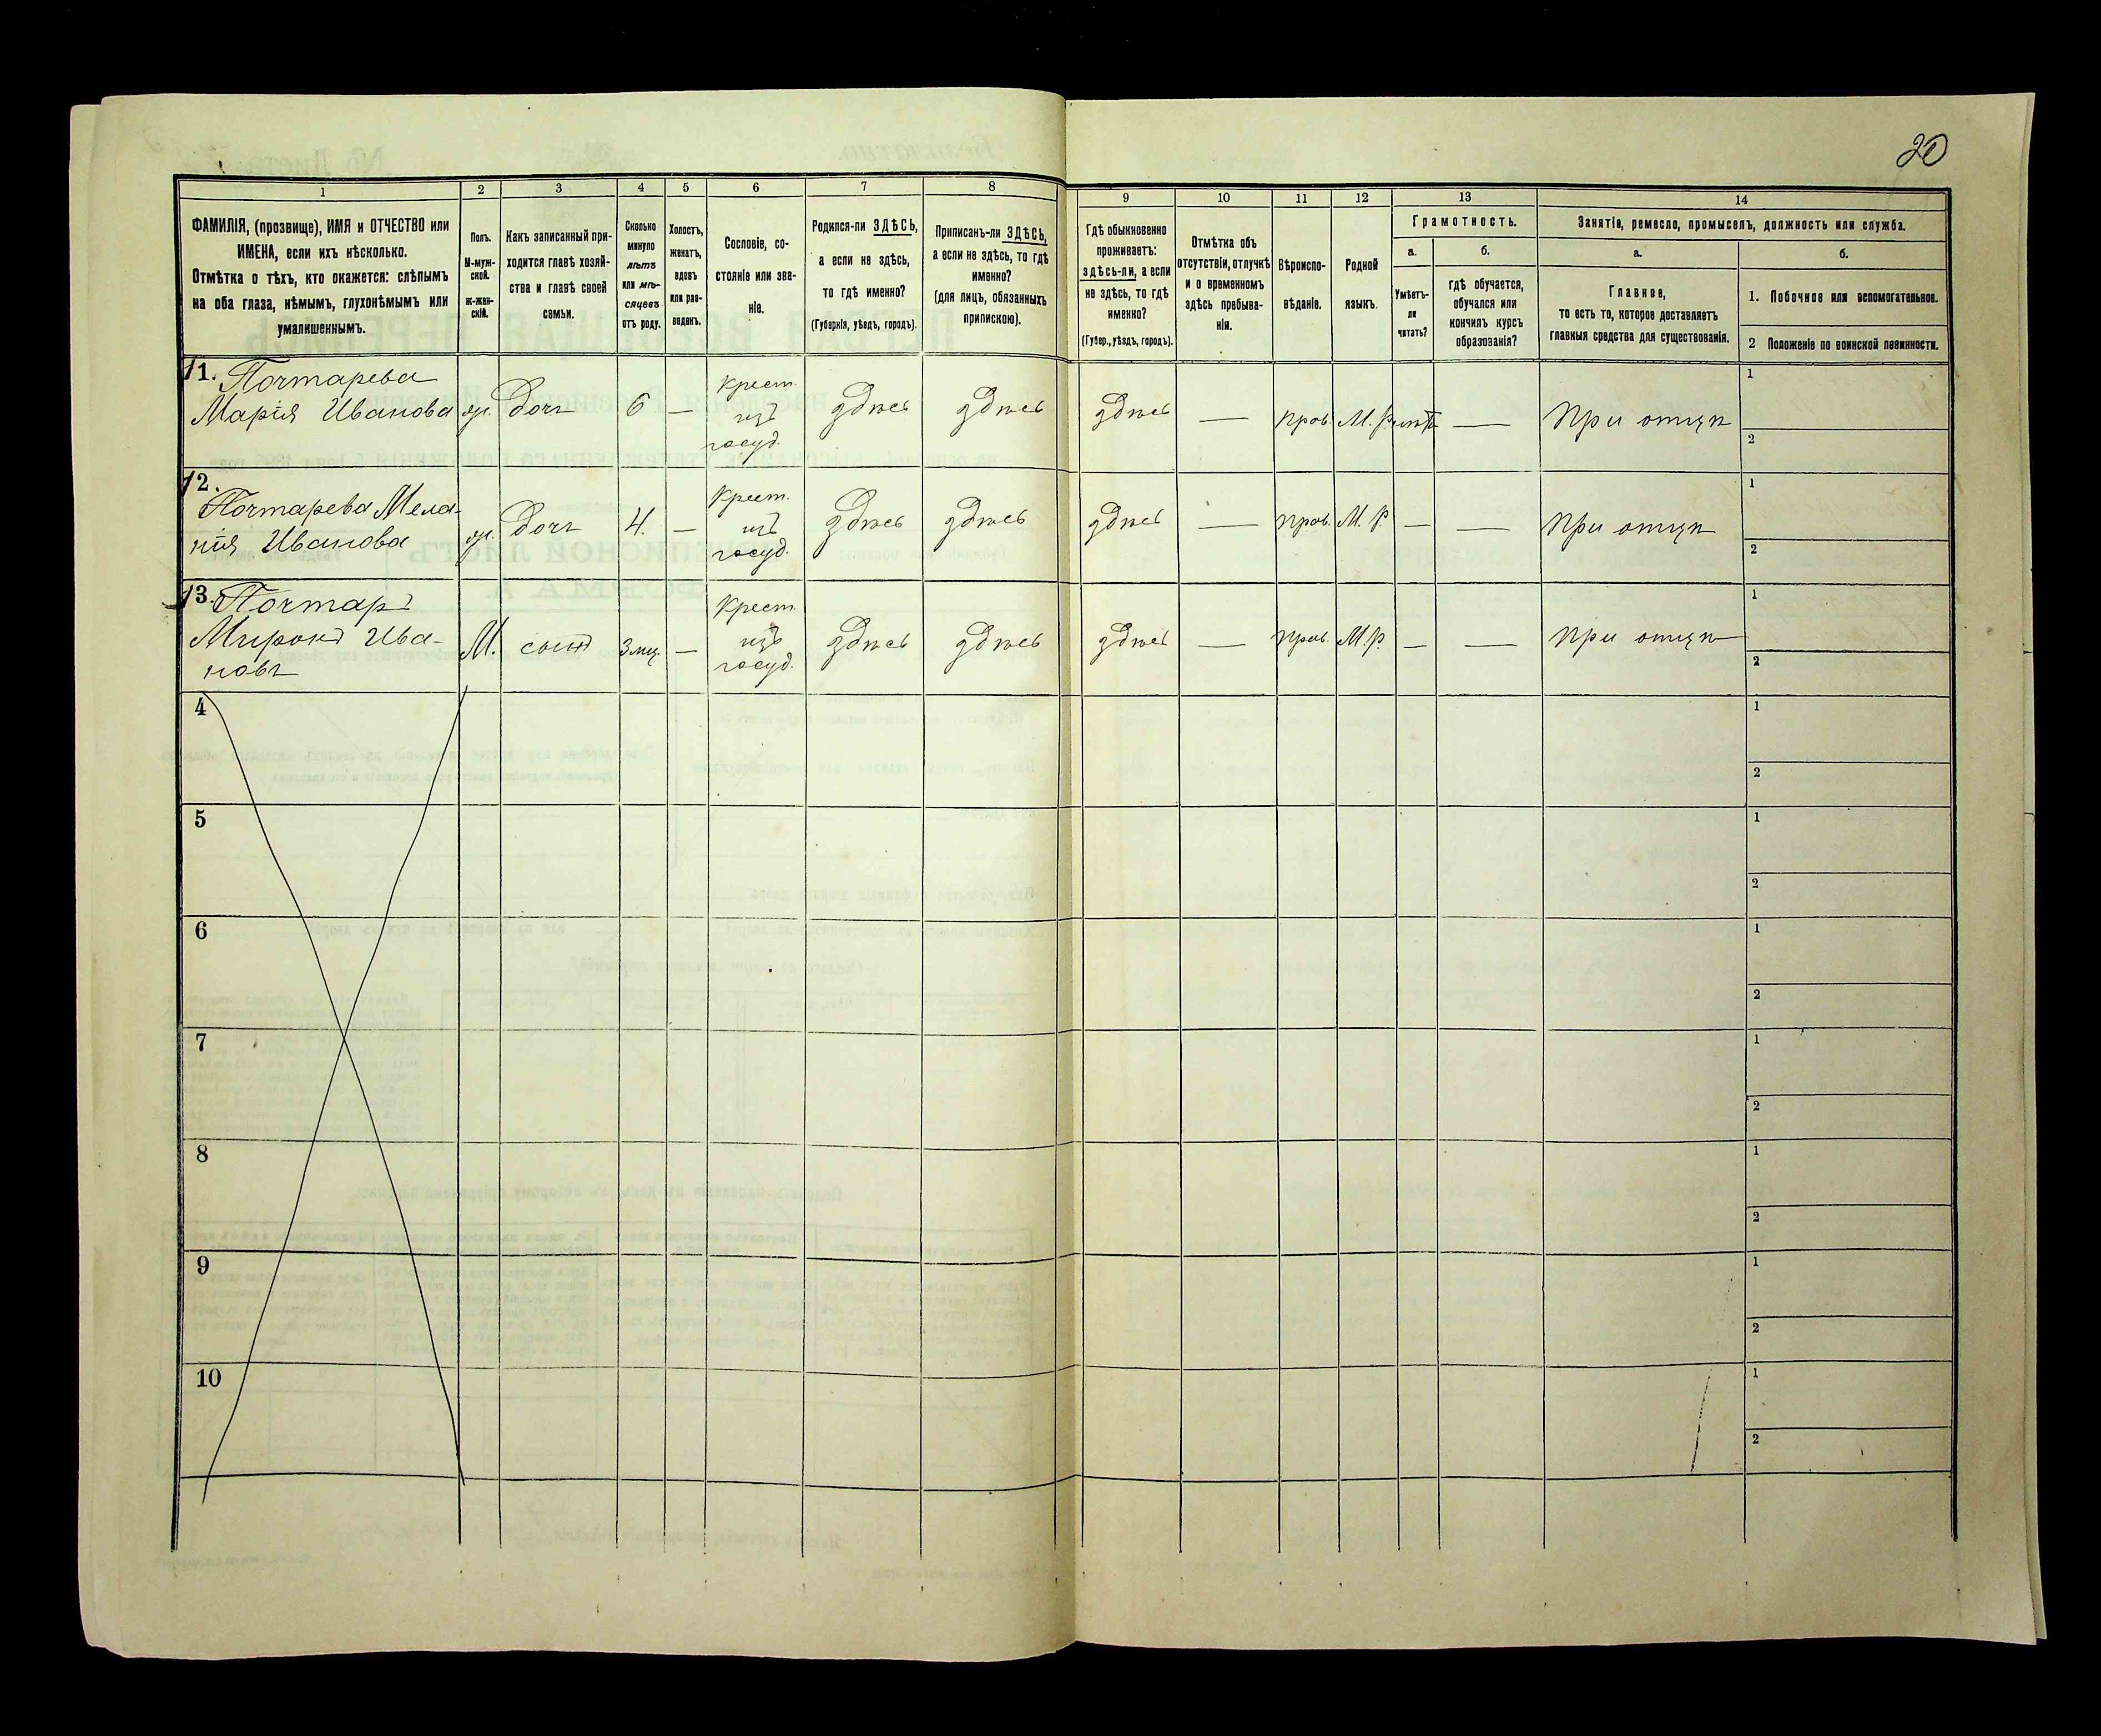 20
1 2 3 4 5 6 7 8 9 10 11 12 13 14
ФАМИЛІЯ, (прозвище), ИМЯ и ОТЧЕСТВО или
ИМЕНА, если ихъ нѣсколько.
Отмѣтка о тѣхъ, кто окажется: слѣпымъ
на оба глаза, нѣмымъ, глухонѣмымъ или
умалишеннымъ.
Полъ.
М-муж-
ской.
Ж-жен-
скій.
Какъ записанный при-
ходится главѣ хозяй-
ства и главѣ своей
семьи.
Сколько
минуло
лѣтъ
или мѣ-
сяцевъ
отъ роду.
Холостъ,
женатъ,
вдовъ
или раз-
веденъ.
Сословіе, со-
стояніе или зва-
ніе.
Родился-ли ЗДѢСЬ,
а если не здѣсь,
то гдѣ именно?
(Губернія, уѣздъ, городъ).
Приписанъ-ли ЗДѢСЬ,
а если не здѣсь, то гдѣ
именно?
(для лицъ, обязанныхъ
припискою).
Гдѣ обыкновенно
проживаетъ:
здѣсь-ли, а если
не здѣсь, то гдѣ
именно?
(Губер., уѣздъ, городъ).
Отмѣтка объ
отсутствіи, отлучкѣ
и о временномъ
здѣсь пребыва-
ніи.
Вѣроиспо-
вѣданіе.
Родной
языкъ.
Грамотность.
а.
Умѣетъ-
ли
читать?
б.
гдѣ обучается,
обучался или
кончилъ курсъ
образованія?
Занятіе, ремесло, промыселъ, должность или служба.
а.
Главное,
то есть то, которое доставляетъ
главныя средства для существованія.
б.
1. Побочное или вспомогательное.
2 Положеніе по воинской повинности.
11. Почтарева
Марія Иванова ж. Дочь 6 — Крест. изъ госуд. здѣсь здѣсь здѣсь — прав. М. Р. нѣтъ — При отцѣ
1
2
12. Почтарева Мела-
нія Иванова ж. Дочь 4. — Крест. изъ госуд. здѣсь здѣсь здѣсь — прав. М. Р — — При отцѣ
1
2
13. Почтарь
Миронъ Ива-
новъ М. сынъ 3 мц. — Крест. изъ госуд. здѣсь здѣсь здѣсь — прав. М.Р. — — При отцѣ
1
2
4
1
2
5
1
2
6
1
2
7
1
2
8
1
2
9
1
2
10
1
2